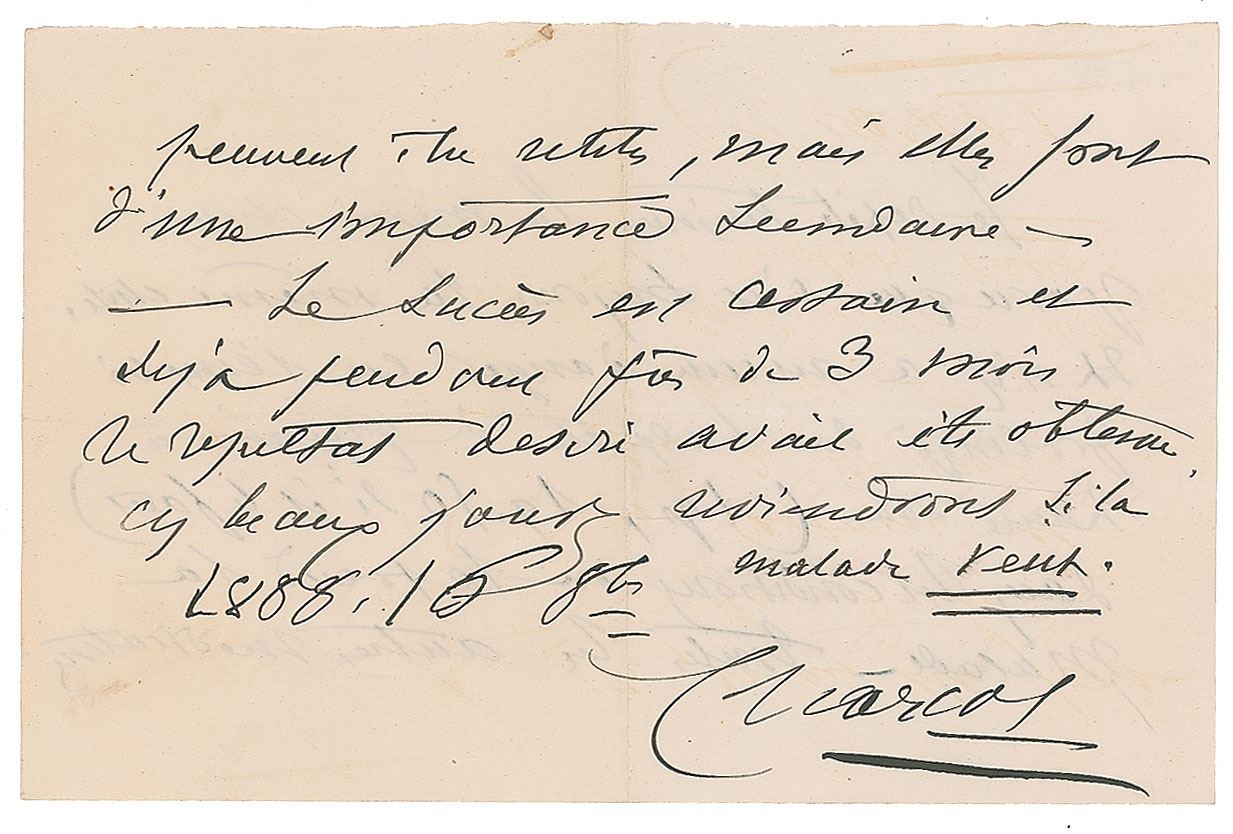 peuvent être utiles, mais elles sont
d'une importance secondaire —
— Le succès est certain et
déjà pendant près de 3 mois
le resultat desiré avait été obtenu,
ces beaux jours reviendront si la
malade veut.
1888. 16 8bre
Charcot